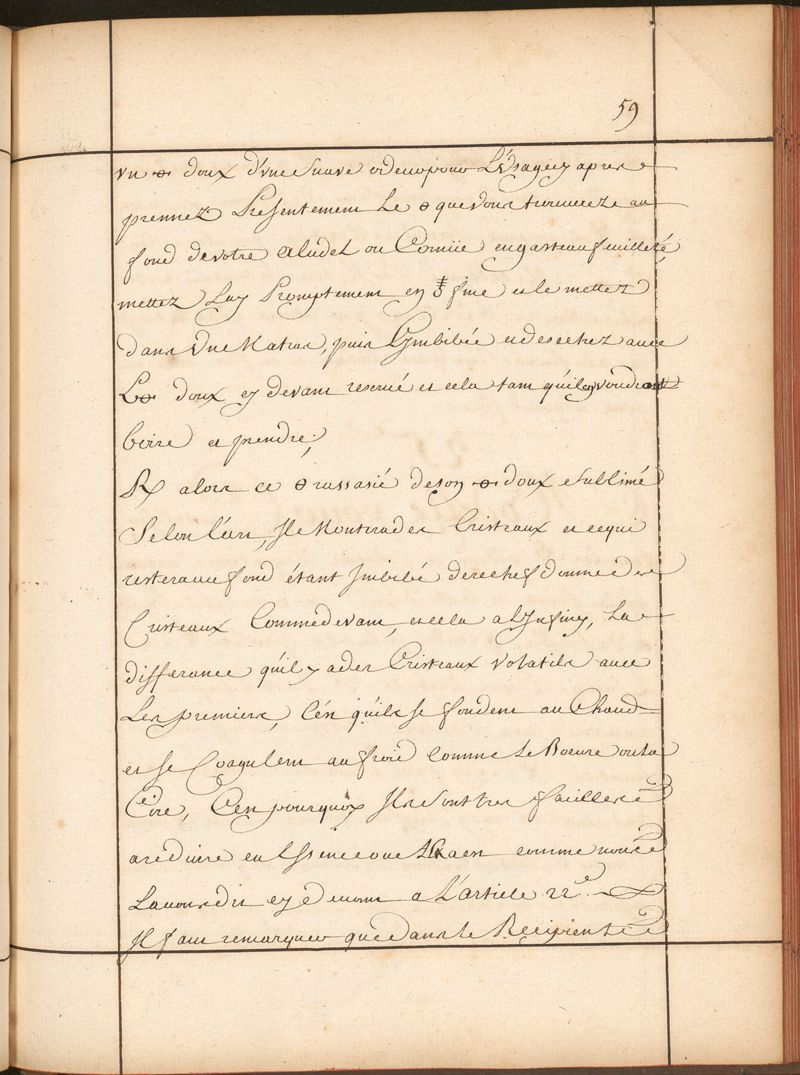 59
un 🜔 doux d'une suave odeur pour L'usage cy apres
prennez Presentement Le 🜔 que vous trouverez au
fond de votre aludel ou Cornüe en gasteau feuilleté,
mettez Luy Promptement en fine et le mettez
dans Une Matras, puis Lymbibée et desechez avec
Le doux cy devant reservé et cela tant qu'il en voudra
boire et prendre;
℞ alors ce rassasié de son doux sublimé
Selon l'art, Il Montera des Cristeaux et ce qui
restera au fond étant Imbibé derechef donne de
Cristeaux Comme devant, et cela a L'Infiny, La
differance qu'il y a des Cristeaux volatils avec
Les premiers, C'est qu'ils se fondent au Chaud
et se Coagulent au froid comme le Boeure ou la
Cire, C'est pourquoy Ils sont tres facilles
a reduire en Essence ou comme nous
L'avons dit cy devant a L'article 22e.
Il faut remarquer que dans le Recipient